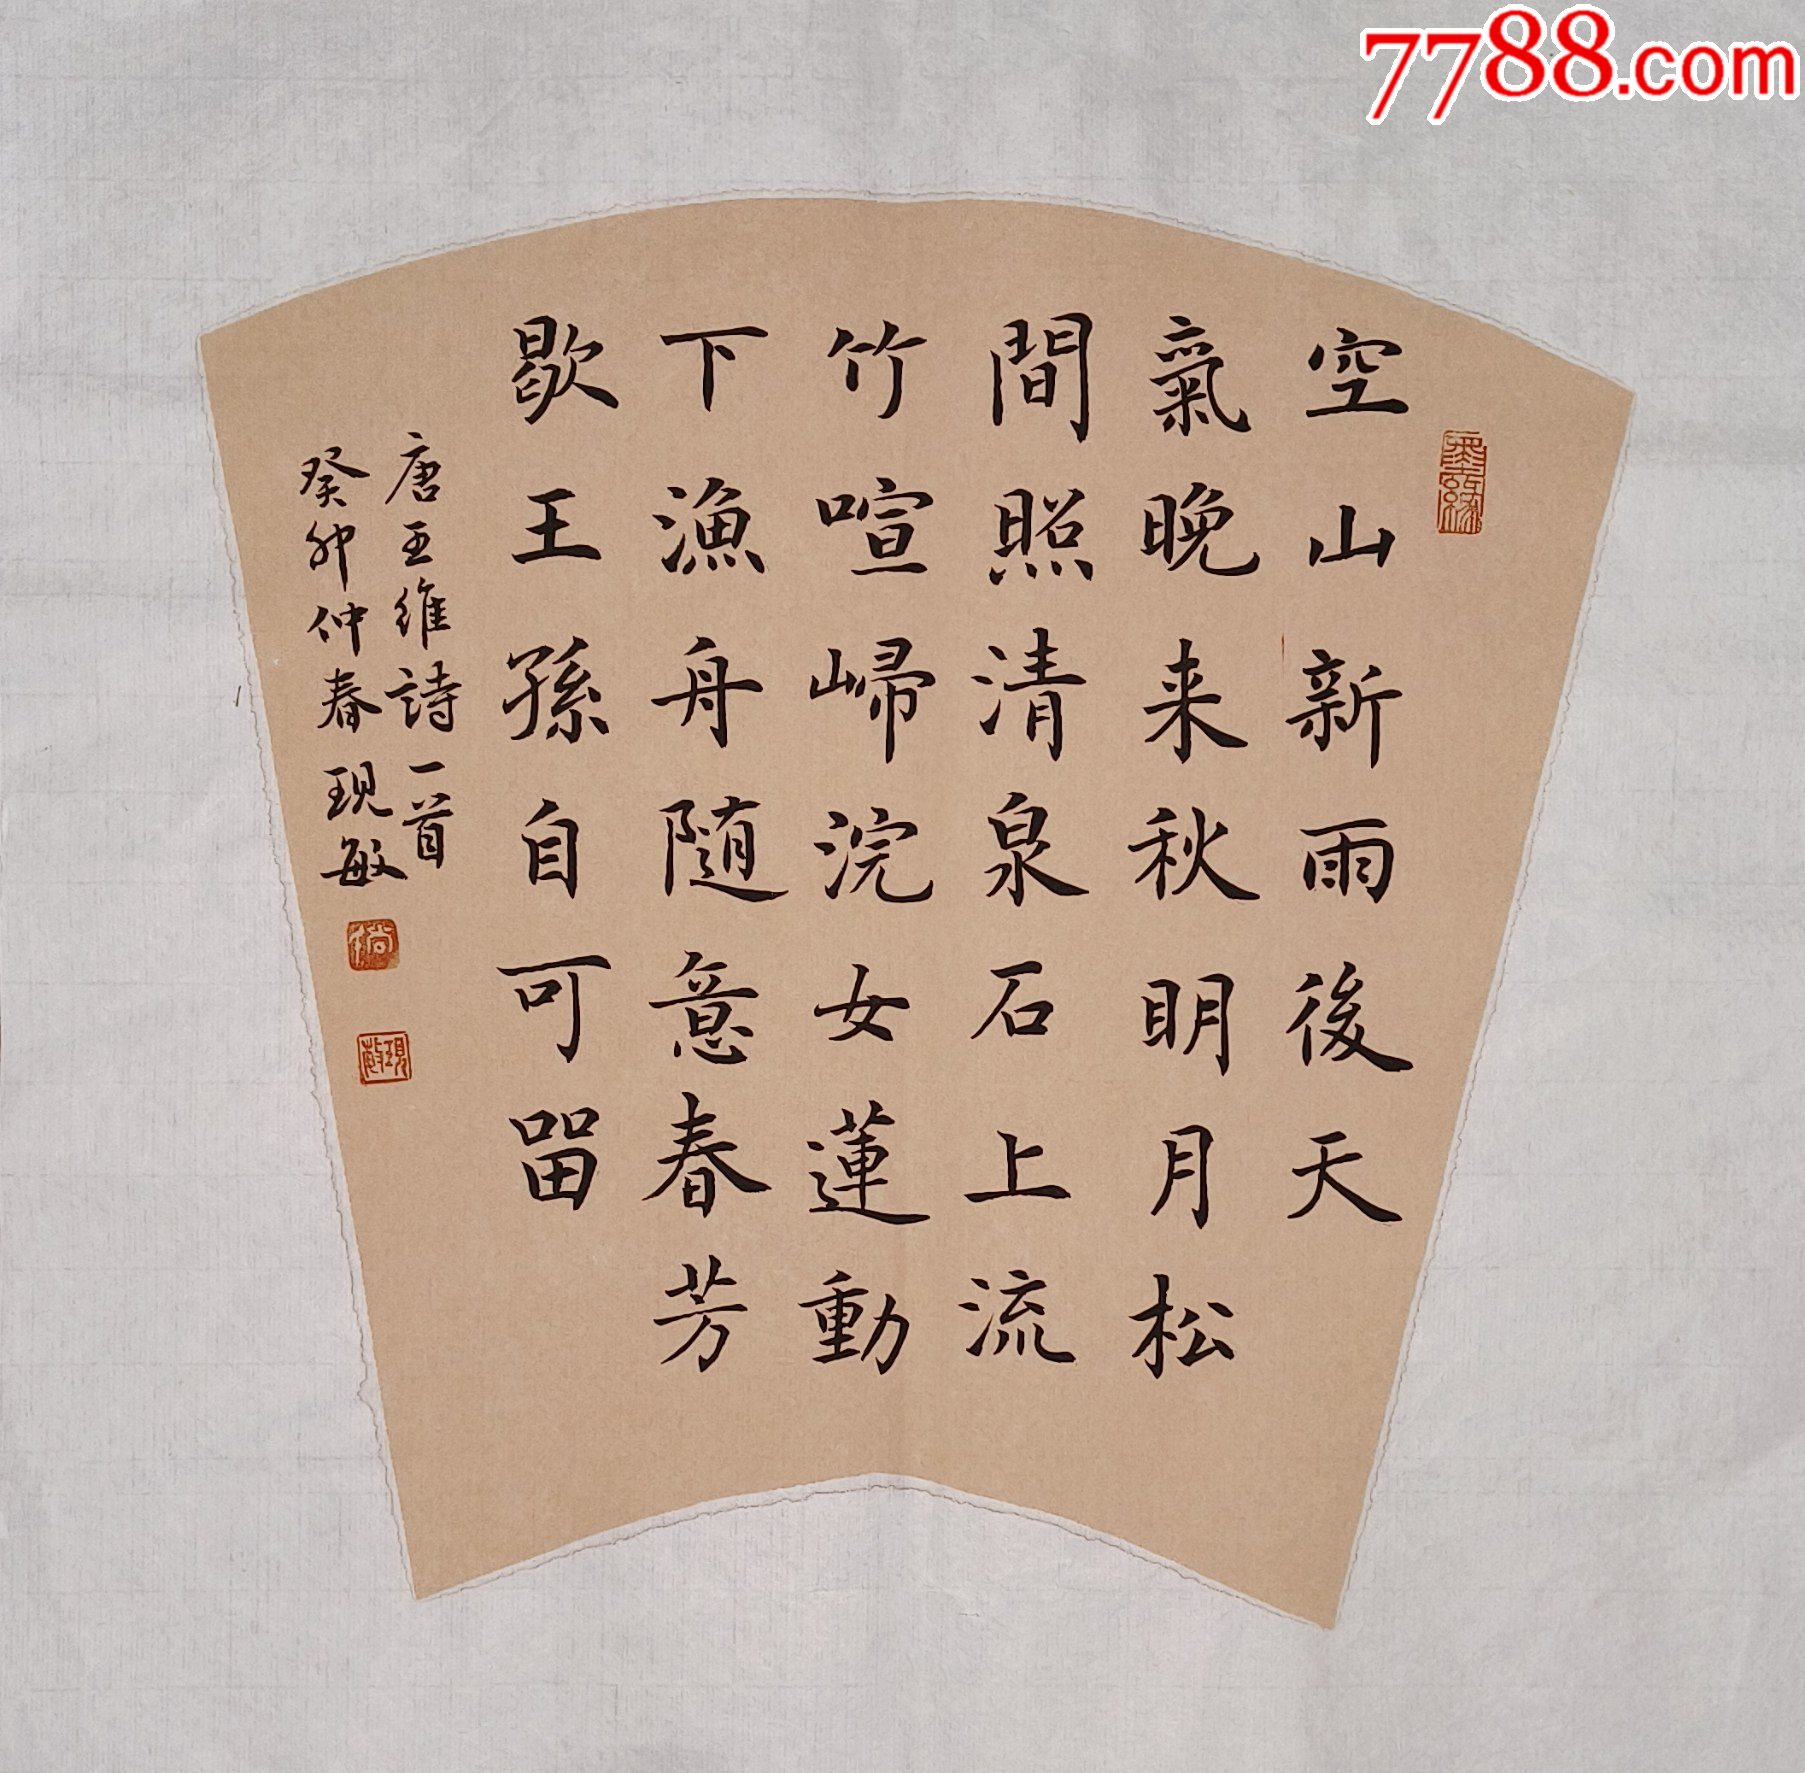 空山新雨後天
氣晚来秋明月松
間照清泉石上流
竹喧歸浣女蓮動
下漁舟随意春芳
歇王孫自可留
唐王維詩一首
癸卯仲春現敏
墨緣
現敏
7788.com